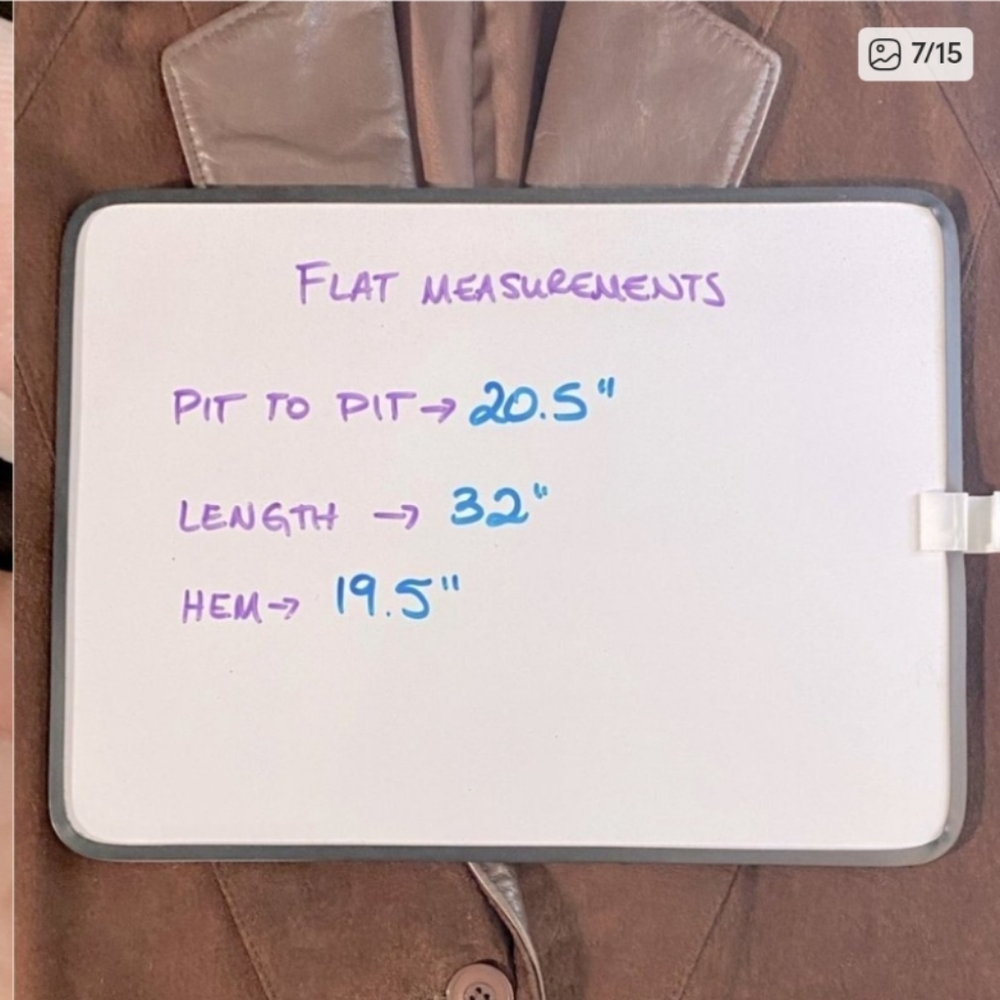 7/15
FLAT MEASUREMENTS
PIT TO PIT → 20.5"
LENGTH → 32"
HEM → 19.5"